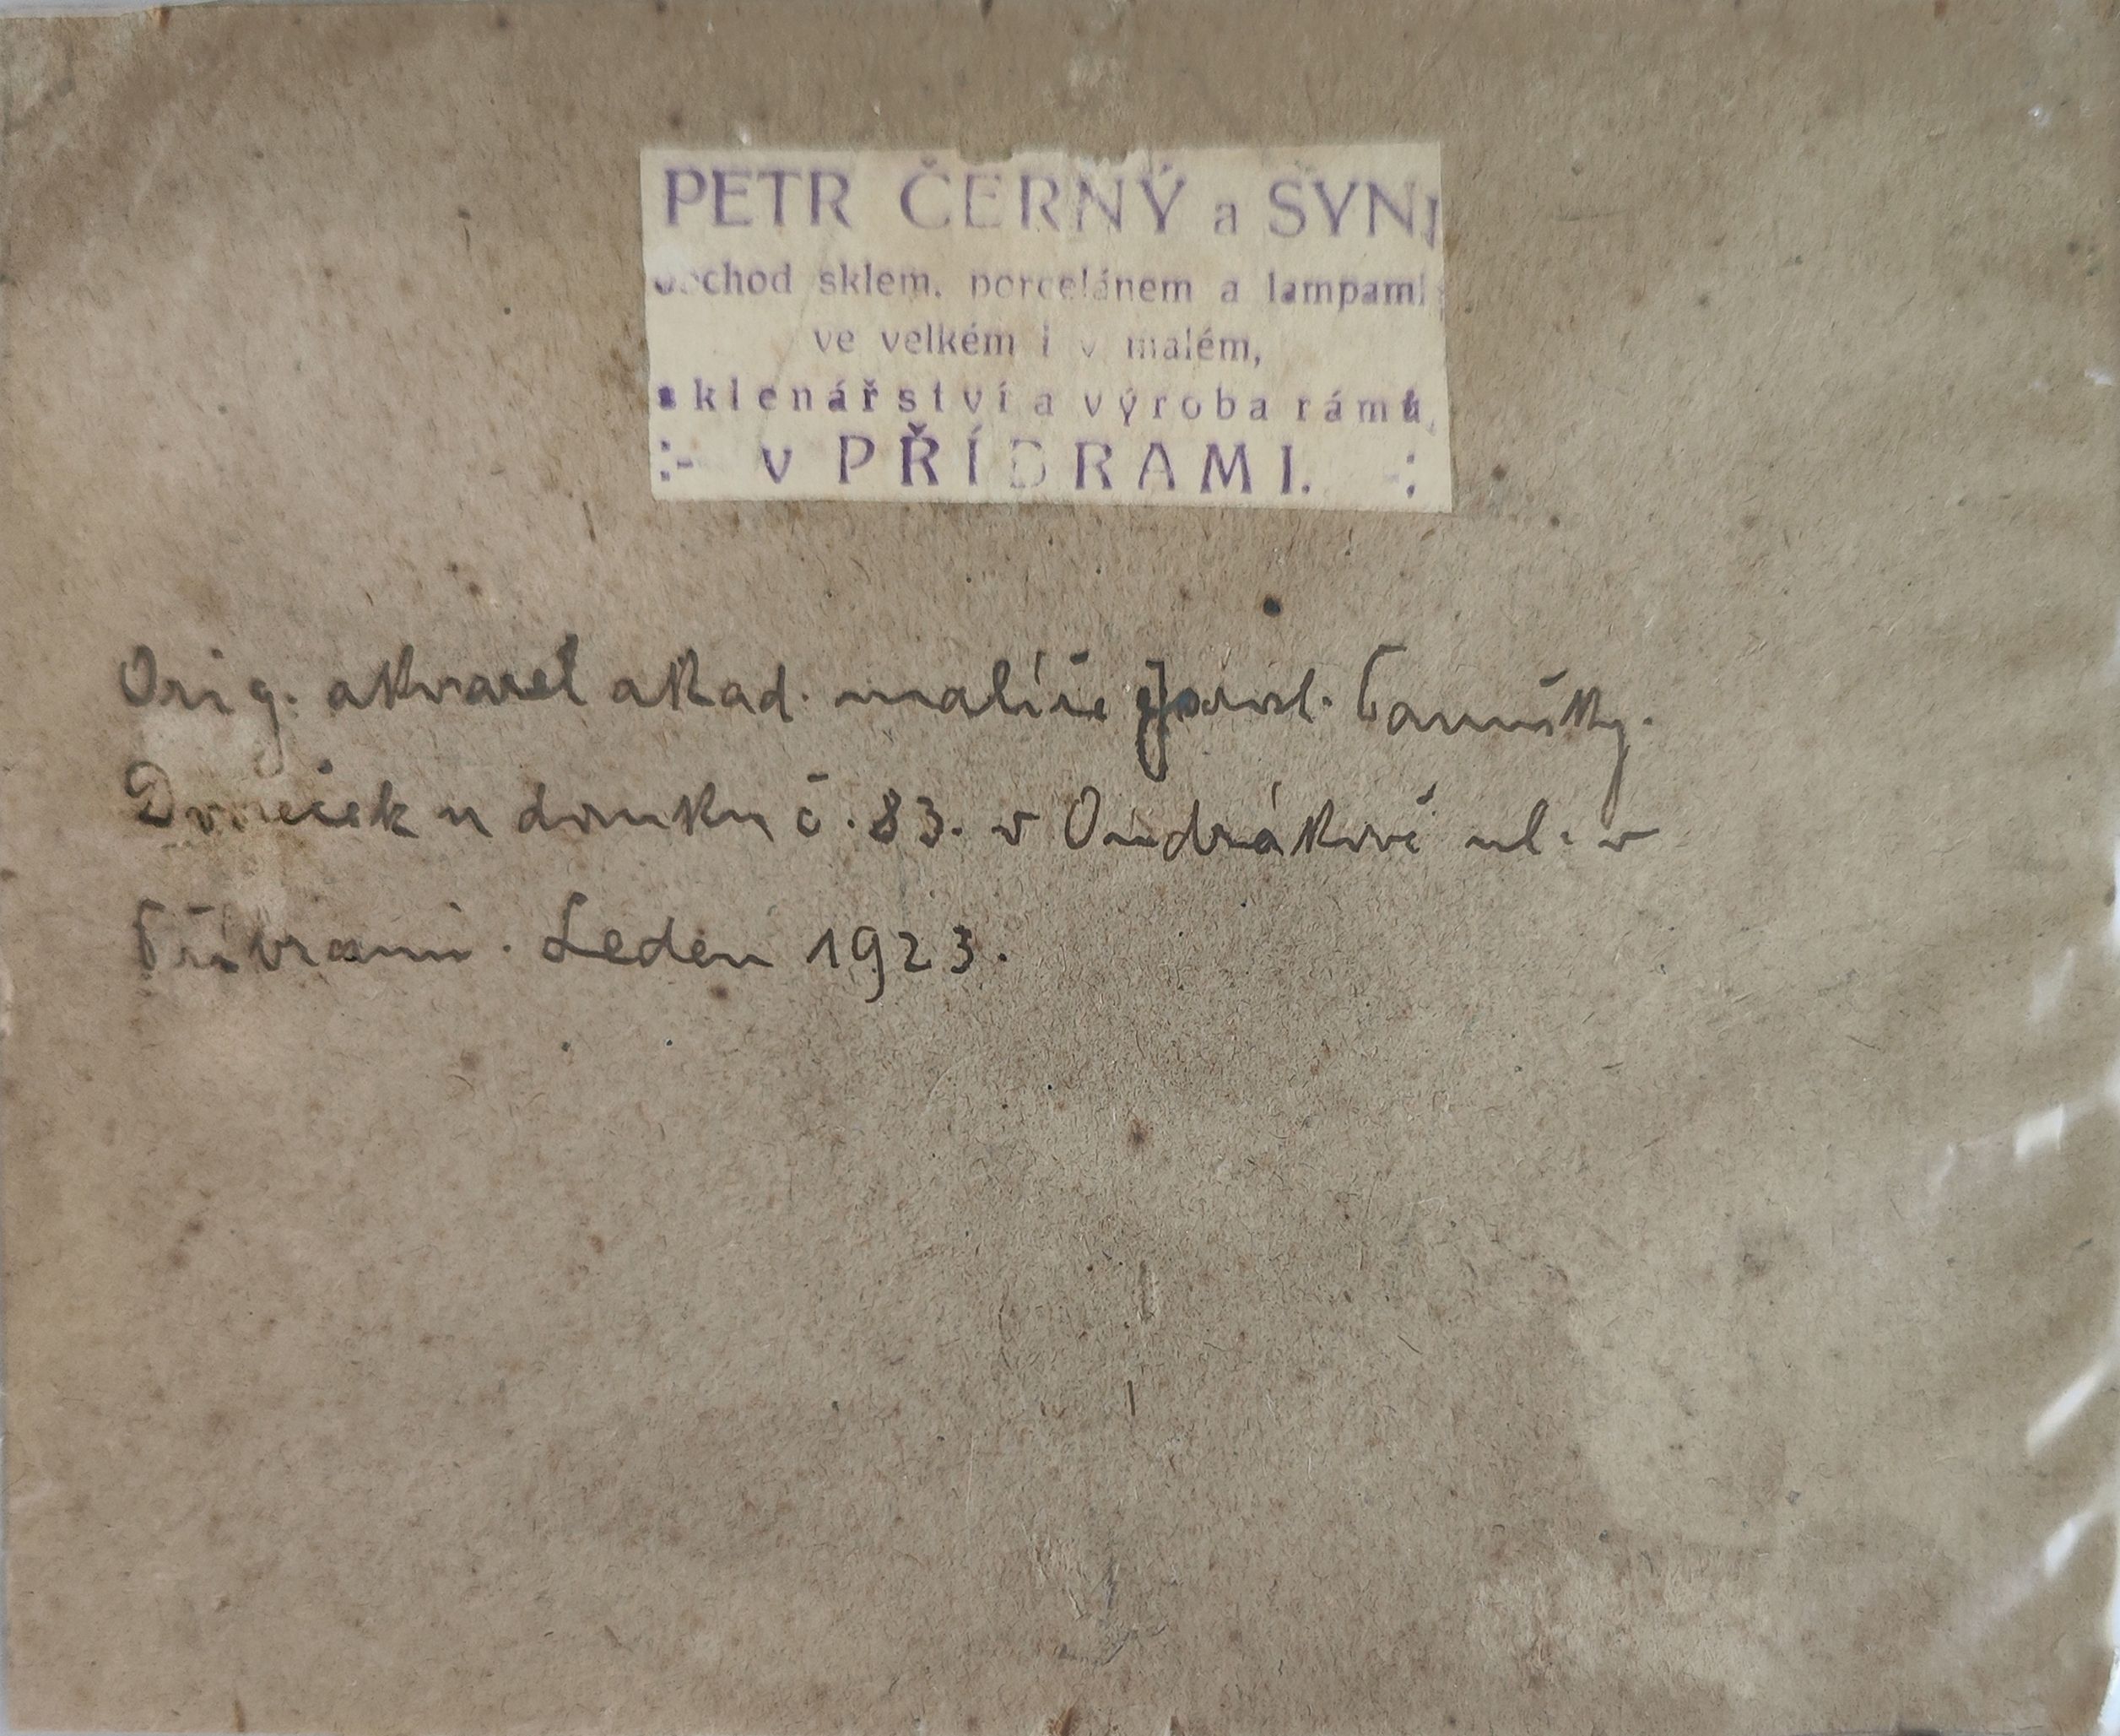 PETR ČERNÝ a SYN
obchod sklem, porcelánem a lampami
ve velkém i v malém,
sklenářství a výroba rámů,
:- v PŘÍBRAMI. -:
Orig. akvarel akad. malíře Jarosl. Panušky.
Dvoreček u domku č. 83. v Ondrákově ul. v
Příbrami. Leden 1923.